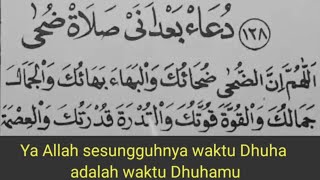 دُعَاءْ بَعْدَانَىْ صَلَاةْ ضُحَى
١٢٨
اَللّٰهُمَّ اِنَّ الضُّحٰى ضُحَائُكَ وَالْبَهَاءَ بَهَائُكَ وَالْجَمَالَ
جَمَالُكَ وَالْقُوَّةَ قُوَّتُكَ وَالْقُدْرَةَ قُدْرَتُكَ وَالْعِصْمَةَ
Ya Allah sesungguhnya waktu Dhuha
adalah waktu Dhuhamu